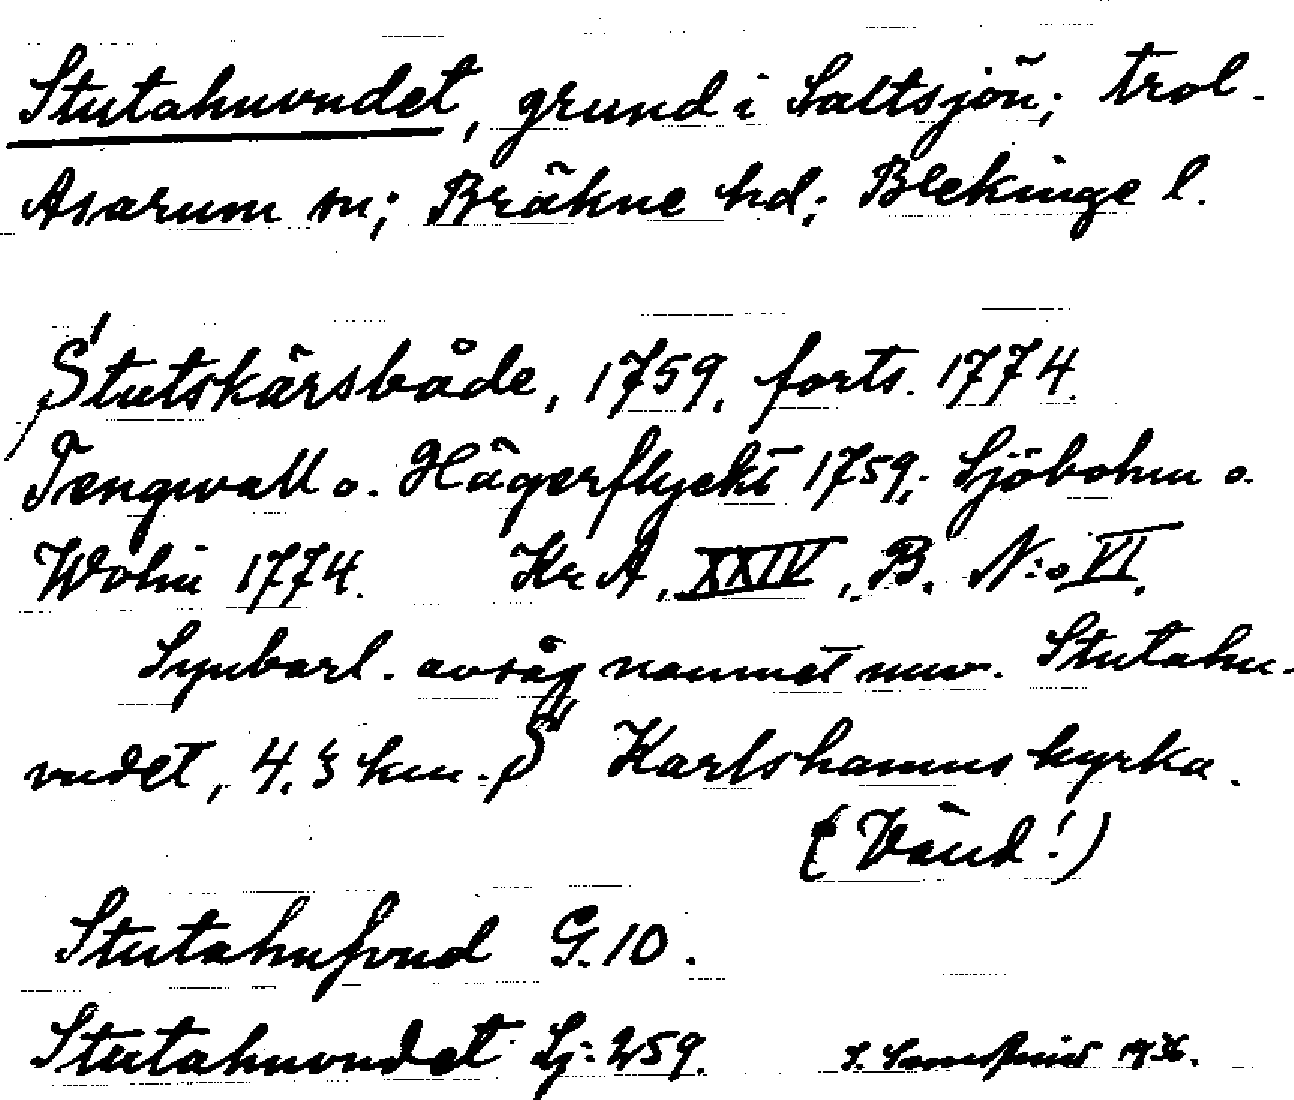 Stutahuvudet, grund i Saltsjön; trol.
Asarum sn; Bräkne hd; Blekinge l.
Stutskärsbåde, 1759, forts. 1774.
Tengwall o. Hägerflyckt 1759; Sjöbohm o.
Wohn 1774. Kr A, XXIV, B. N:o VI.
Synbarl. avsåg namnet nuv. Stutahu-
vudet, 4.3 km. S Karlshamns kyrka.
(Vänd!)
Stutahufvud G. 10.
Stutahuvudet Sj: 259. 1936.